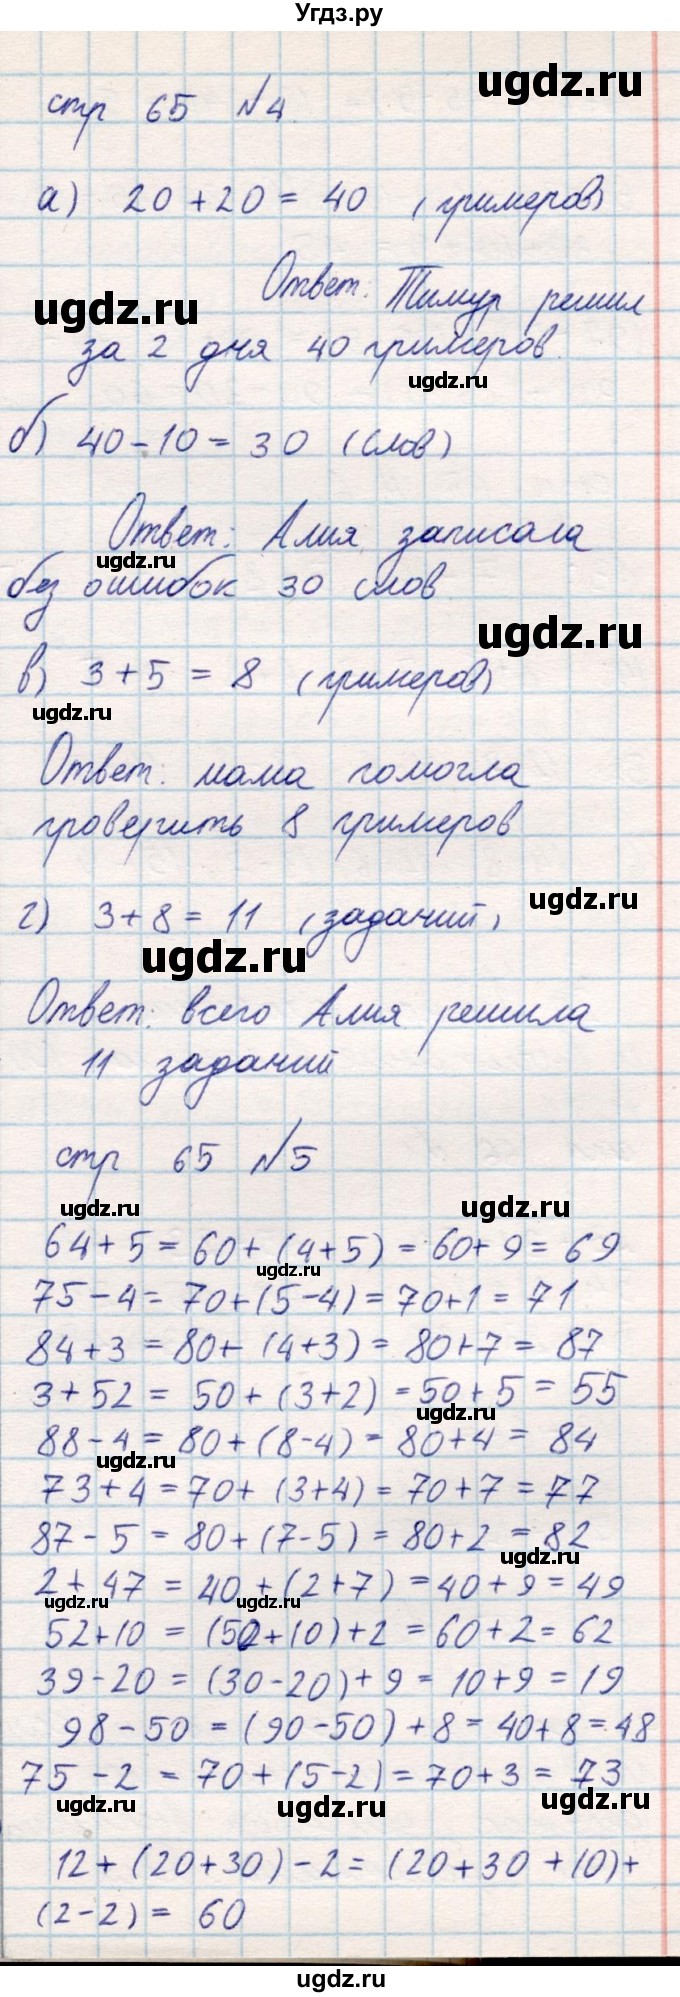 Угдз.ру
ugdz.ru
стр 65 №4
а) 20+20=40 (примеров)
Ответ: Тимур решил
ugdz.ru
за 2 дня 40 примеров.
ugdz.ru
б) 40-10=30 (слов)
Ответ: Алия записала
ugdz.ru
без ошибок 30 слов
ugdz.ru
в) 3+5=8 (примеров)
ugdz.ru
Ответ: мама помогла
проверить 8 примеров
ugdz.ru
г) 3+8=11 (заданий)
ugdz.ru
Ответ: всего Алия решила
11 заданий
стр 65 №5
ugdz.ru
ugdz.ru
64+5=60+(4+5)=60+9=69
ugdz.ru
75-4=70+(5-4)=70+1=71
84+3=80+(4+3)=80+7=87
3+52=50+(3+2)=50+5=55
ugdz.ru
88-4=80+(8-4)=80+4=84
ugdz.ru
73+4=70+(3+4)=70+7=77
87-5=80+(7-5)=80+2=82
ugdz.ru
2+47=40+(2+7)=40+9=49
ugdz.ru
ugdz.ru
52+10=(50+10)+2=60+2=62
39-20=(30-20)+9=10+9=19
98-50=(90-50)+8=40+8=48
75-2=70+(5-2)=70+3=73
ugdz.ru
ugdz.ru
ugdz.ru
12+(20+30)-2=(20+30+10)+
(2-2)=60
ugdz.ru